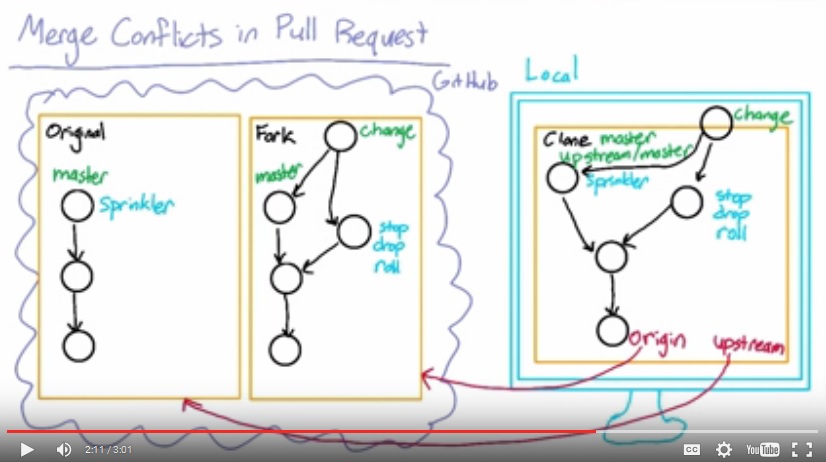 Merge Conflicts in Pull Request
GitHub
Local
Original
master
Sprinkler
Fork
change
master
stop
drop
roll
change
Clone master
upstream/master
Sprinkler
stop
drop
roll
origin
upstream
2:11 / 3:01
CC
YouTube